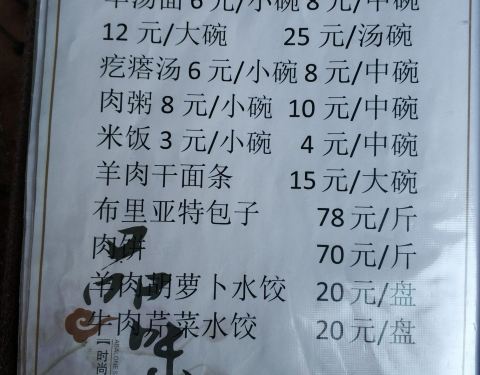 羊汤面 6 元/小碗 8 元/中碗
12 元/大碗 25 元/汤碗
疙瘩汤 6 元/小碗 8 元/中碗
肉粥 8 元/小碗 10 元/中碗
米饭 3 元/小碗 4 元/中碗
羊肉干面条 15 元/大碗
布里亚特包子 78 元/斤
肉饼 70 元/斤
羊肉胡萝卜水饺 20 元/盘
牛肉芹菜水饺 20 元/盘
味
【时尚